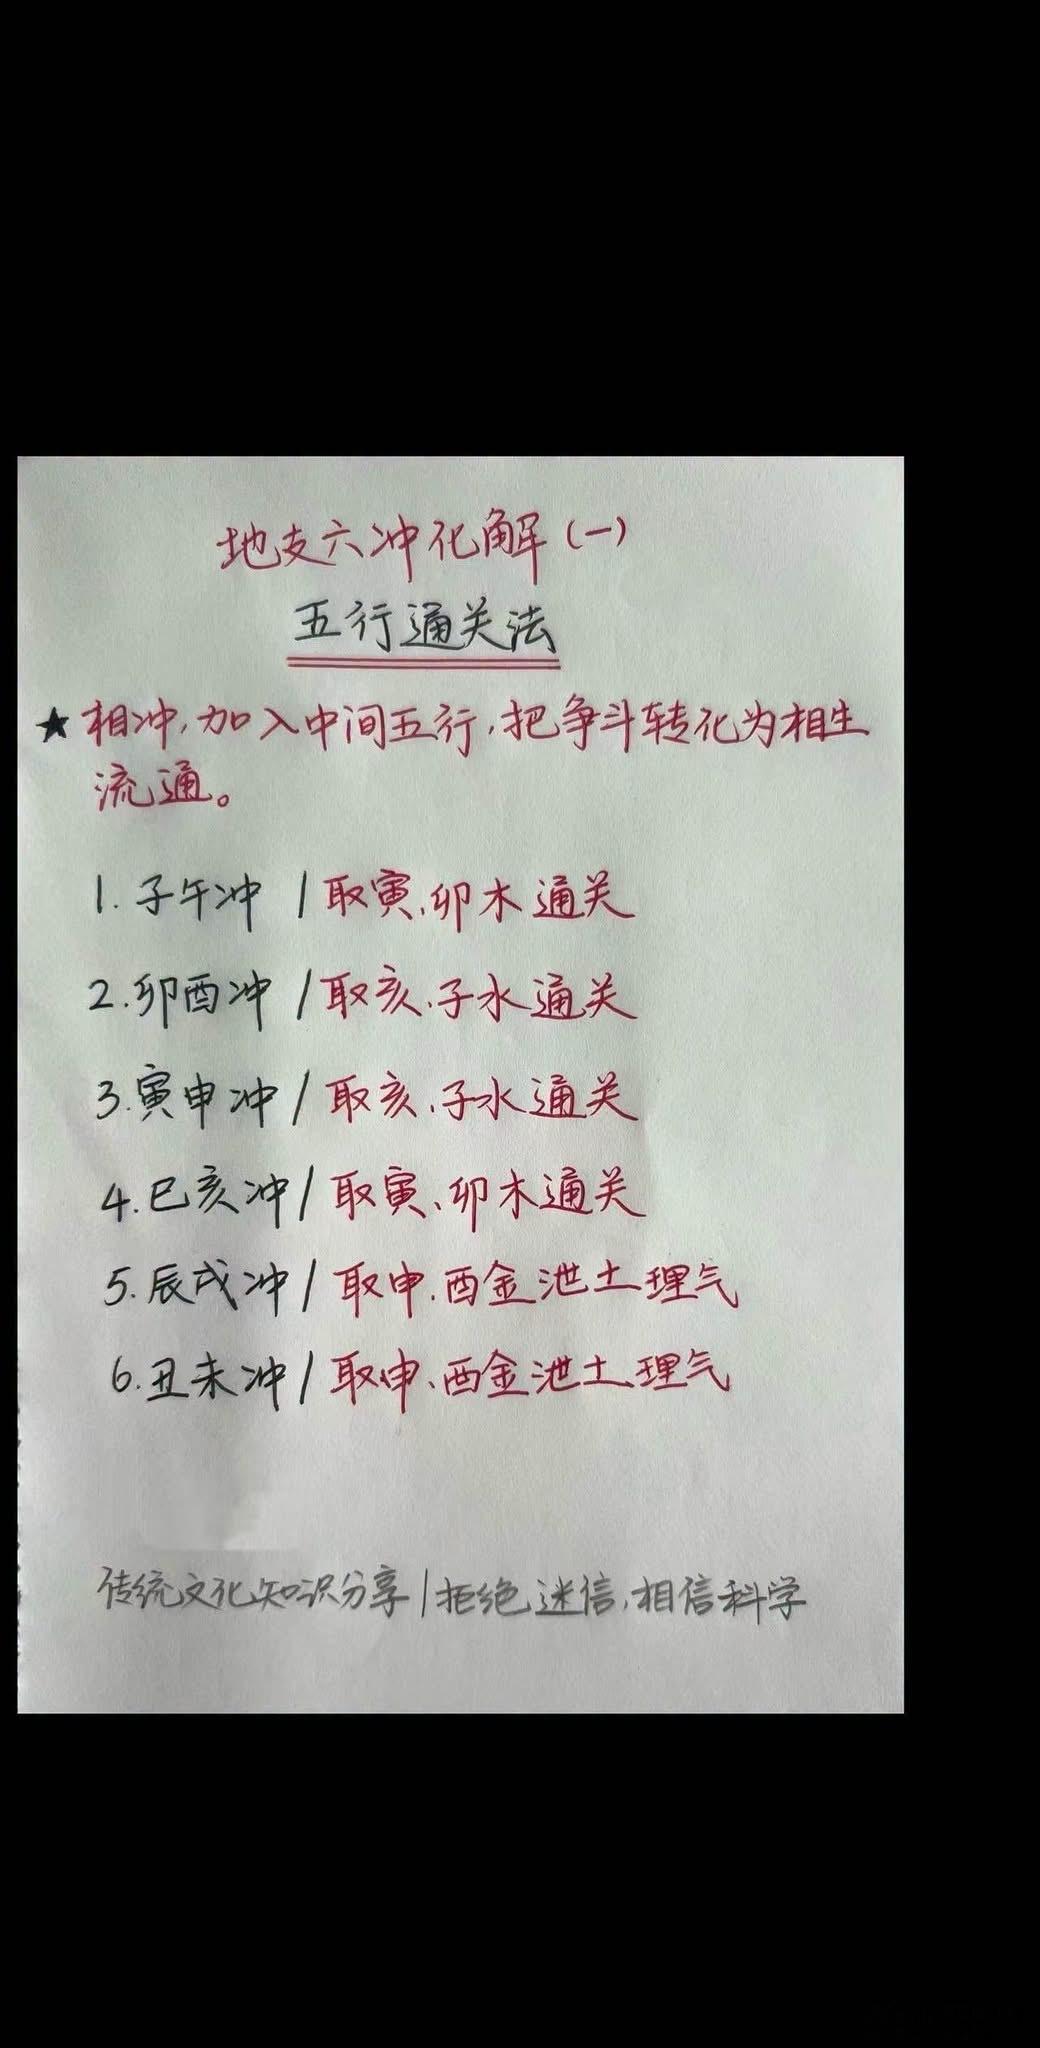 地支六冲化解(一)
五行通关法
★相冲,加入中间五行,把争斗转化为相生
流通。
1.子午冲 / 取寅、卯木通关
2.卯酉冲 / 取亥、子水通关
3.寅申冲 / 取亥、子水通关
4.巳亥冲 / 取寅、卯木通关
5.辰戌冲 / 取申、酉金泄土理气
6.丑未冲 / 取申、酉金泄土理气
传统文化知识分享 | 拒绝迷信,相信科学